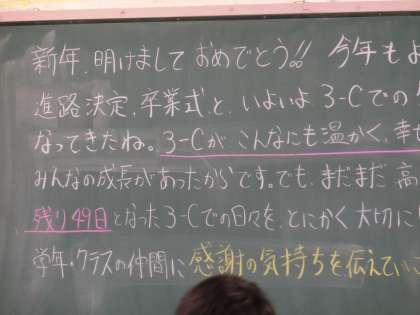 新年、明けまして おめでとう!! 今年もよ
進路決定、卒業式と、いよいよ 3-Cでの
なってきたね。3-Cが、こんなにも温かく、幸せ
みんなの成長があったからです。でも、まだまだ 高
残り49日となった 3-Cでの日々を、とにかく 大切に
学年・クラスの仲間に 感謝の気持ちを伝えてい